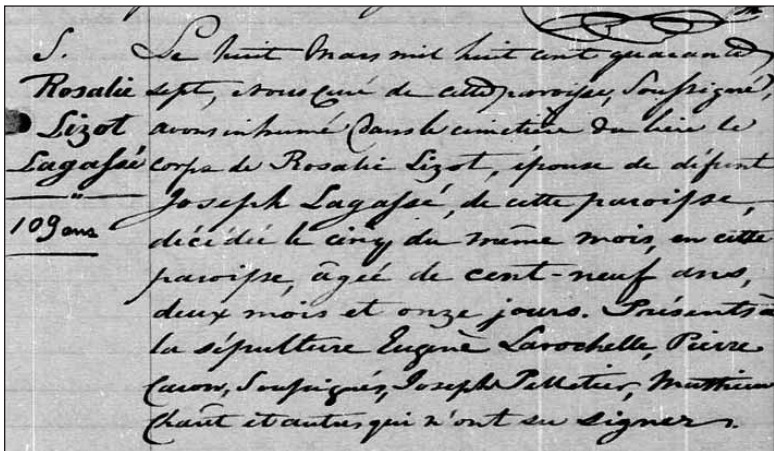 S.
Rosalie
Lizot
Lagassé
"
109 ans
Le huit Mars mil huit cent quarante
sept, nous curé de cette paroisse, Soussigné,
avons inhumé dans le cimetière du lieu le
corps de Rosalie Lizot, épouse de défunt
Joseph Lagassé, de cette paroisse,
décédée le cinq du même mois, en cette
paroisse, âgée de cent-neuf ans,
deux mois et onze jours. Présents à
la sépulture Eugène Larochelle, Pierre
Caron, Soussignés, Joseph Pelletier, Matthieu
et autres qui n'ont su signer.